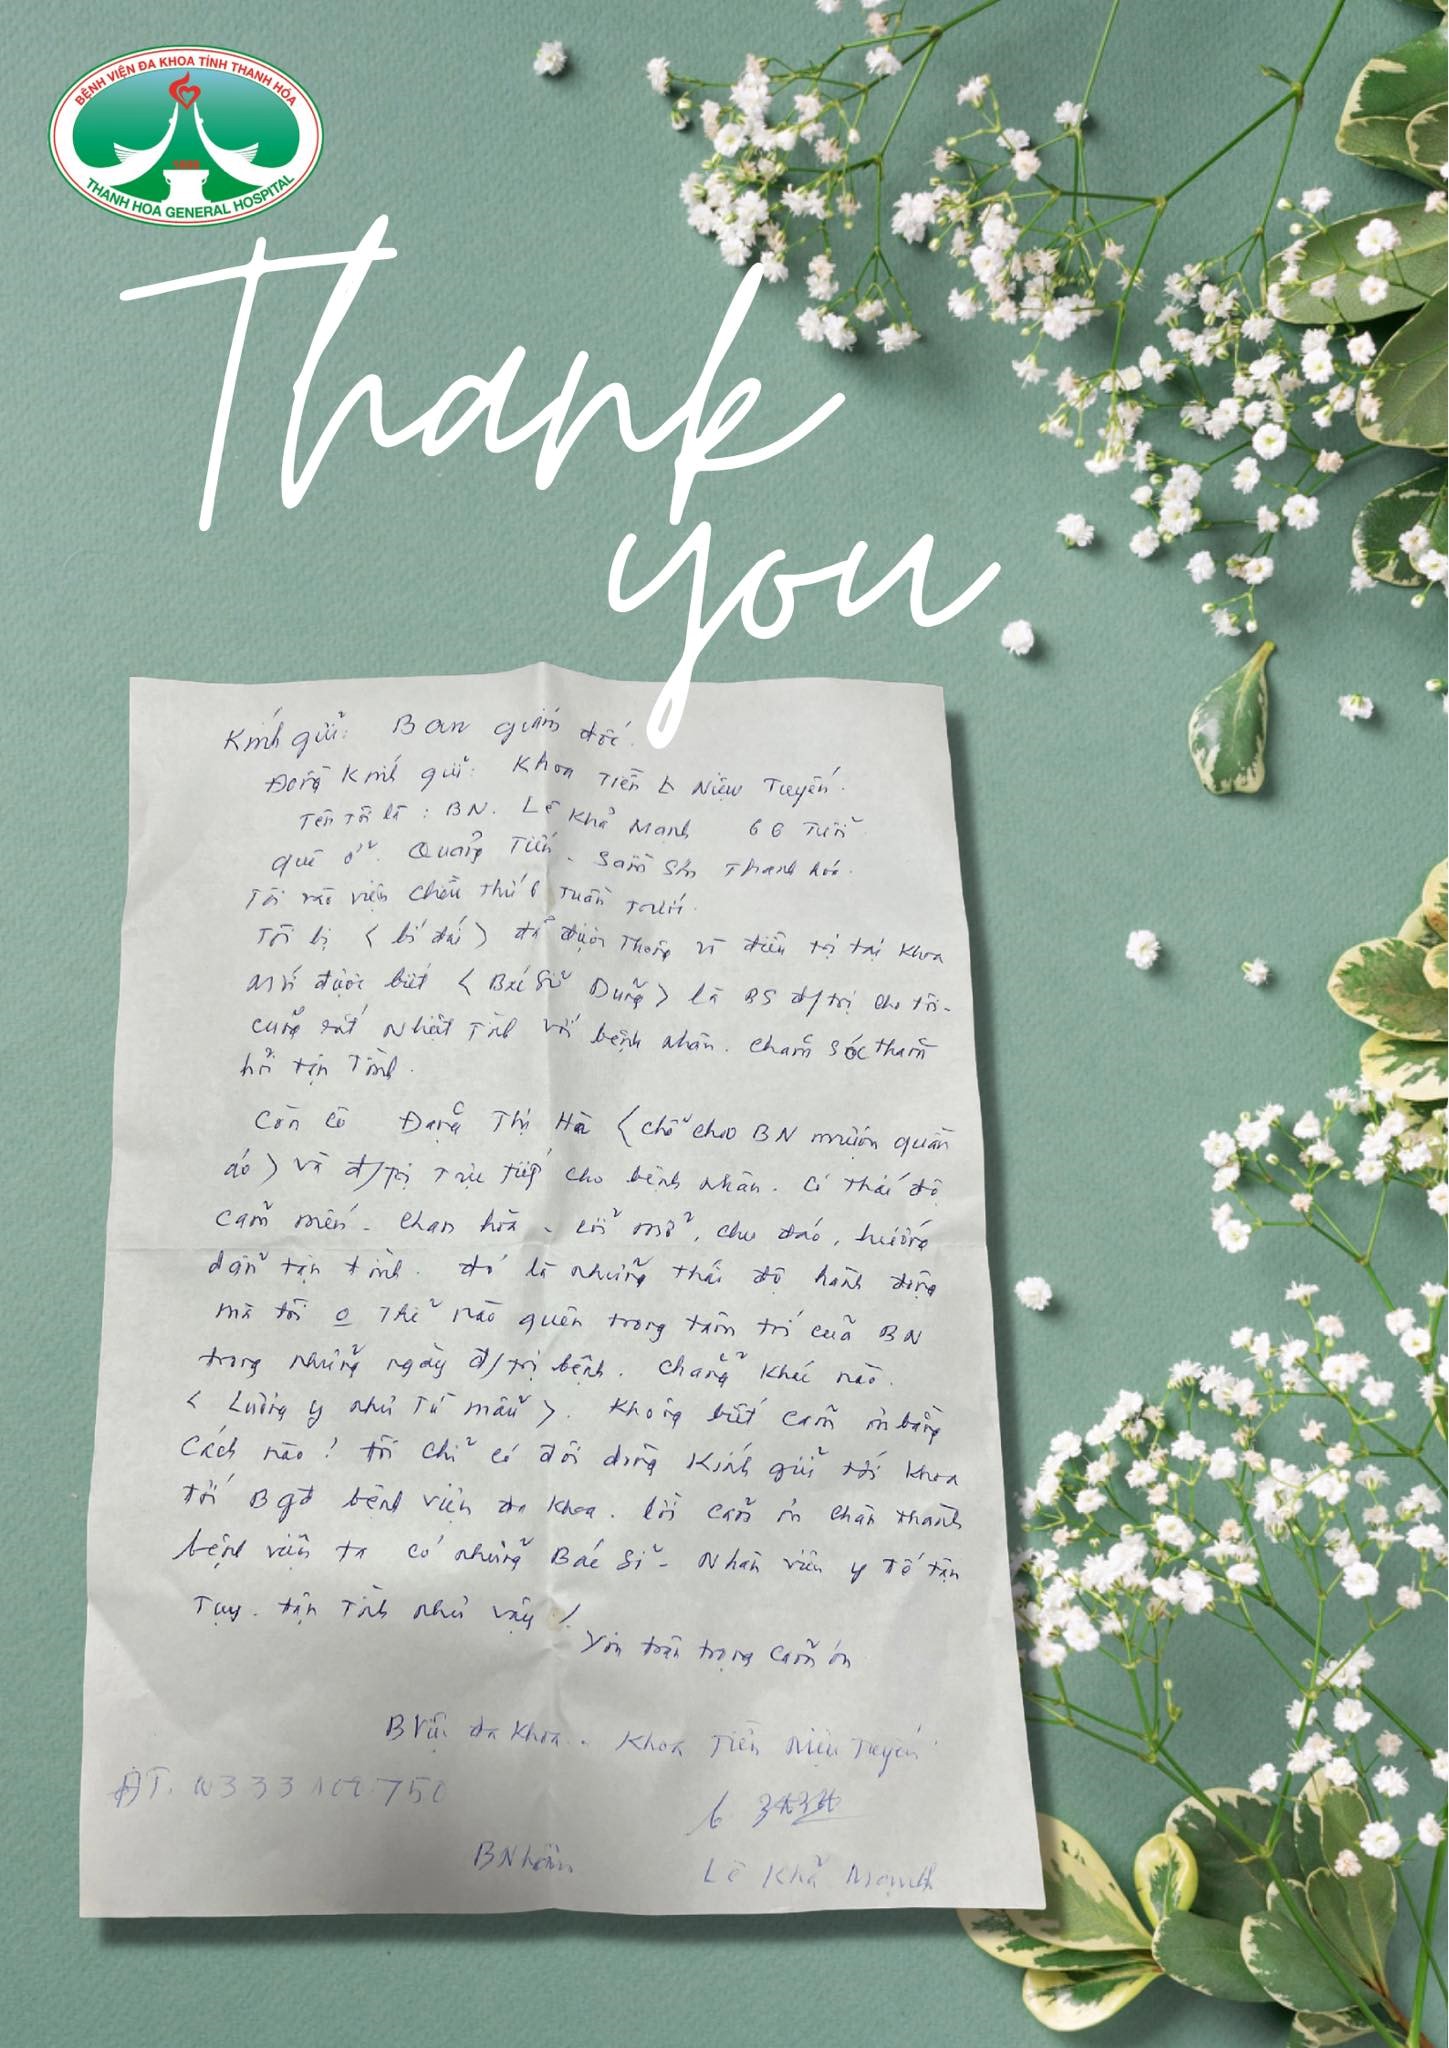 BỆNH VIỆN ĐA KHOA TỈNH THANH HÓA
THANH HOA GENERAL HOSPITAL
Thank
you
Kính gửi: Ban giám đốc.
Đồng Kính gửi: Khoa Tiền L Niệu Tuyến.
Tên tôi là: BN. Lê Khả Mạnh 66 Tuổi
quê ở. Quảng Tiến - Sầm Sơn Thanh Hóa.
Tôi vào viện chiều thứ 6 tuần trước.
Tôi bị < bí đái > đã được thông và điều trị tại khoa
Mới được biết < Bác Sĩ Dũng > là BS đ/trị cho tôi-
cũng rất nhiệt tình với bệnh nhân. chăm sóc thăm
hỏi tận tình.
Còn cô Đặng Thị Hà < chỗ cho BN mượn quần
áo > và đ/trị trực tiếp cho bệnh nhân. Có thái độ
cảm mến - chan hòa - cởi mở, chu đáo, hướng
dẫn tận tình. đó là những thái độ hành động
mà tôi o thể nào quên trong tâm trí của BN
trong những ngày đ/trị bệnh. chẳng khác nào.
< Lương y như từ mẫu >. Không biết cảm ơn bằng
cách nào! tôi chỉ có đôi dòng kính gửi tới khoa
tới Bgđ bệnh viện đa khoa. lời cảm ơn chân thành
bệnh viện ta có những Bác Sĩ - Nhân viên y tế tận
tụy. tận tình như vậy!
Xin trân trọng cảm ơn
BViện đa khoa - Khoa Tiền Niệu Tuyến
ĐT. 0333 109 750
BNhân
Lê Khả Mạnh